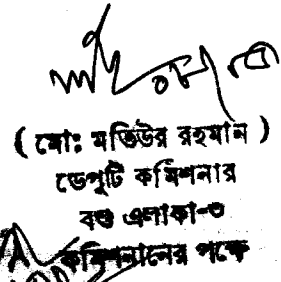 ( মোঃ মতিউর রহমান )
ডেপুটি কমিশনার
বণ্ড এলাকা-৩
কমিশনানের পক্ষে